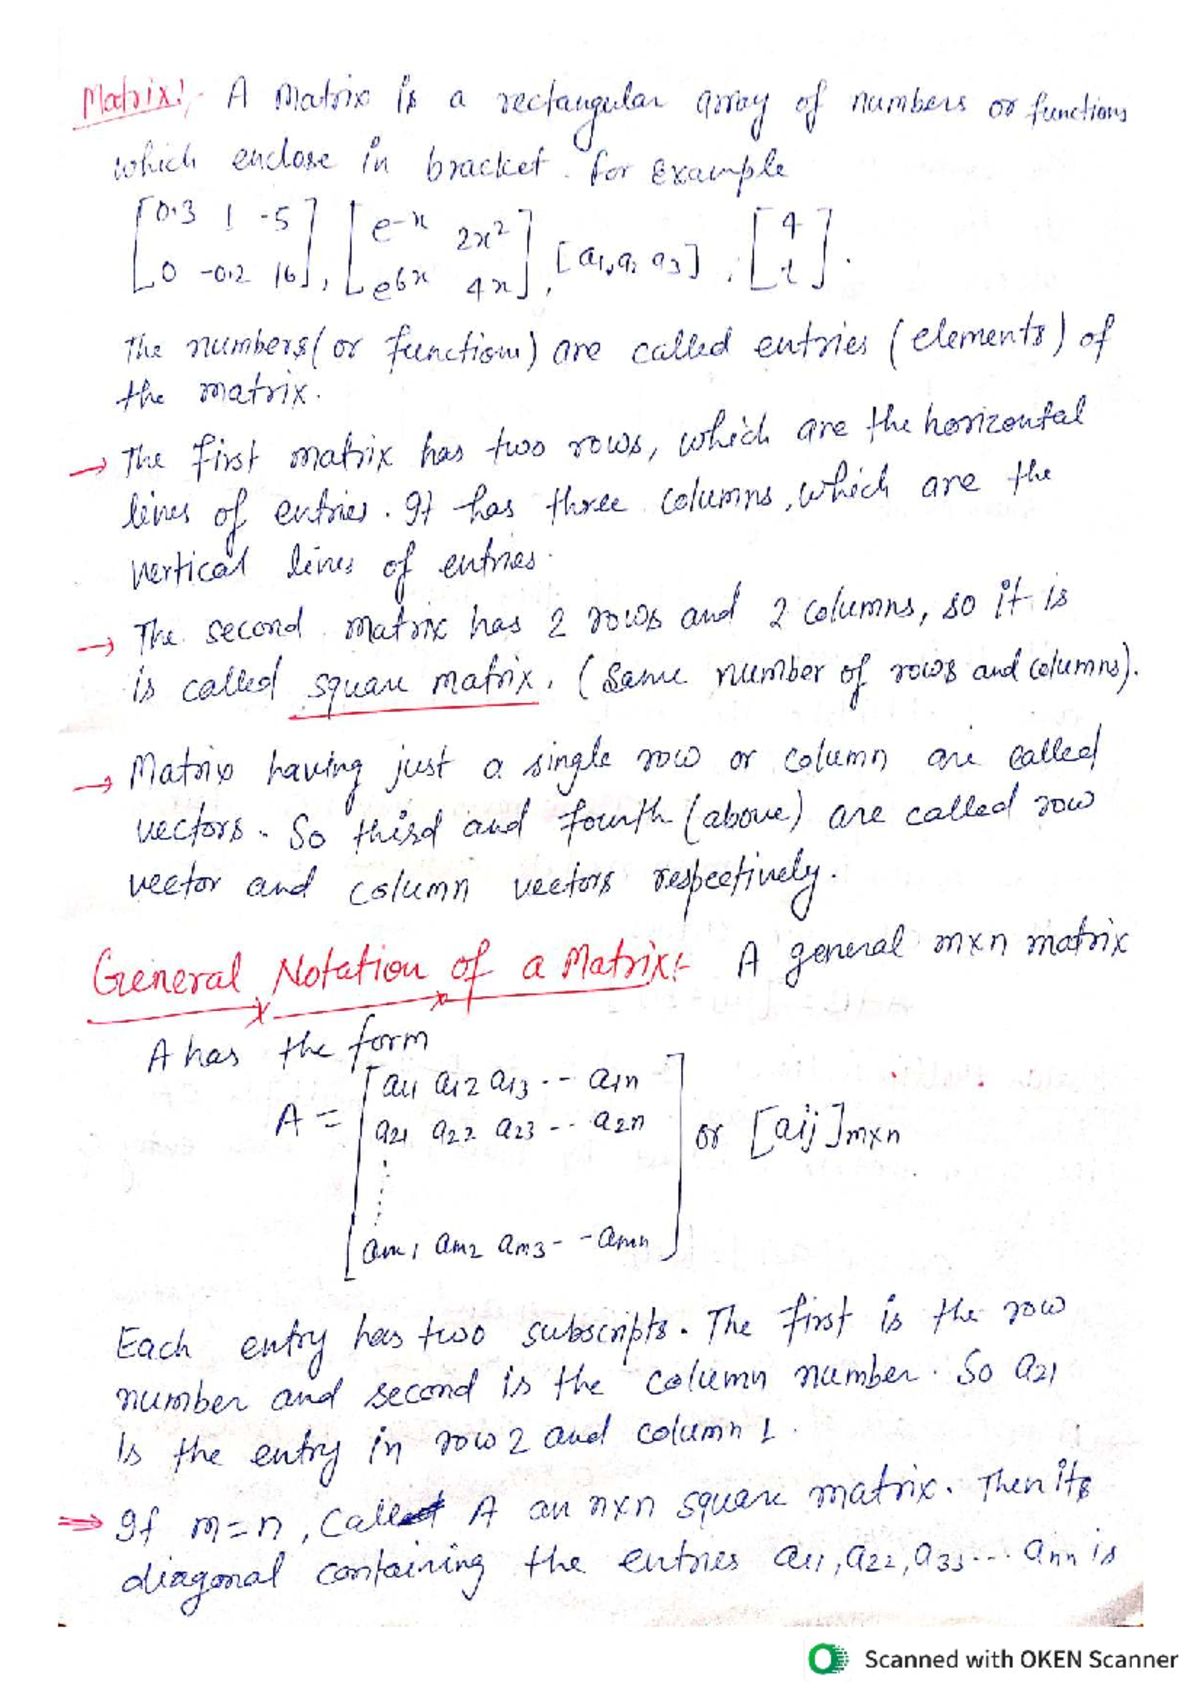 Matrix:- A Matrix is a rectangular array of numbers or functions
which enclose in bracket. for Example
[0.3 1 -5
0 -0.2 16], [e^-x 2x^2
e^6x 4x], [a1, a2 a3], [4
1/2].
The numbers (or functions) are called entries (elements) of
the matrix.
→ The first matrix has two rows, which are the horizontal
lines of entries. It has three columns, which are the
vertical lines of entries.
→ The second matrix has 2 rows and 2 columns, so it is
is called square matrix. (Same number of rows and columns).
→ Matrix having just a single row or column are called
vectors. So third and fourth (above) are called row
vector and column vectors respectively.
General Notation of a Matrix:- A general m×n matrix
A has the form
A = [a11 a12 a13 -- a1n
a21 a22 a23 -- a2n
⋮
am1 am2 am3 -- amn] or [aij]m×n
Each entry has two subscripts. The first is the row
number and second is the column number. So a21
is the entry in row 2 and column 1.
⇒ If m=n, Call A an n×n square matrix. Then its
diagonal containing the entries a11, a22, a33 --- ann is
Scanned with OKEN Scanner